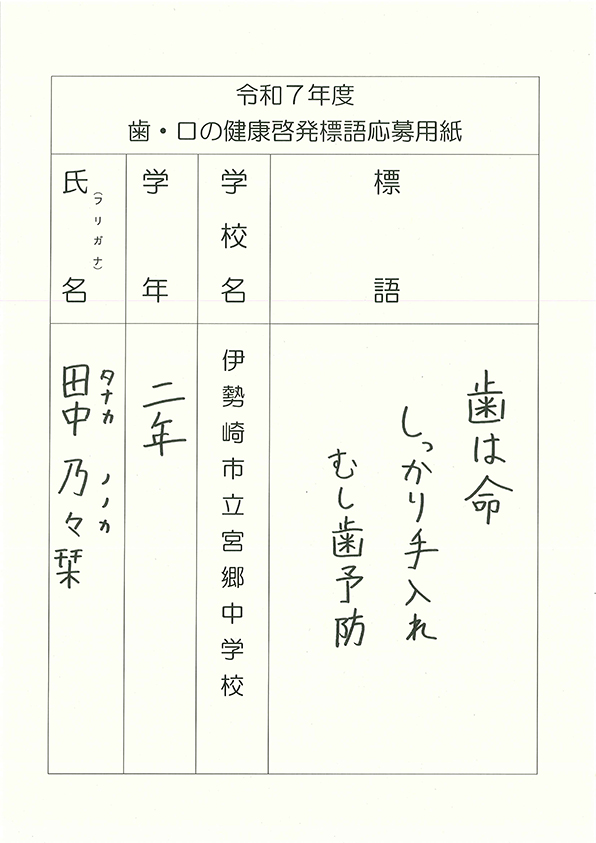 令和7年度
歯・口の健康啓発標語応募用紙
標語
歯は命
しっかり手入れ
むし歯予防
学校名
伊勢崎市立宮郷中学校
学年
二年
氏名
(フリガナ)
タナカ ノノカ
田中 乃々栞